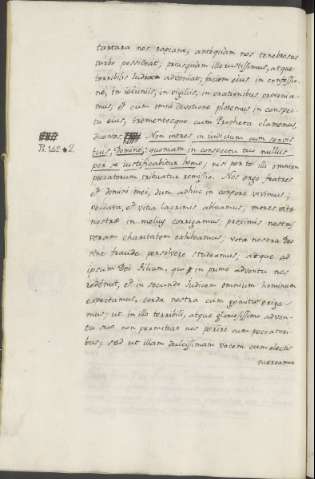 tartara nos rapiant, antequam nos tenebrosus
turbo possideat, priusquam ille iustissimus, atque
terribilis Iudex adveniat, faciem eius in confessio-
ne, in ieiuniis, in vigiliis, in orationibus praevenia-
mus, et cum omni devotione ploremus in conspec-
tu eius, trementesque cum Propheta clamemus,
dicentes Non intres in iudicium cum servis
P. 142. 2.
tuis, Domine, quoniam in conspectu tuo nullus
iustificabitur homo, nisi per te illi omnium
peccatorum tribuatur remissio. Nos ergo fratres
et domini mei, dum adhuc in corpore vivimus,
peccata, et vitia lacrimis abluamus, mores
nostros in melius corrigamus, proximis nostris
veram charitatem exhibeamus, vota nostra Deo
sine fraude persolvere studeamus, atque ad
ipsum Dei Filium, qui in primo adventu nos
redemit, et in secundo Iudicem omnium hominum
expectamus, corda nostra cum gemitu eriga-
mus; ut in illo terribili, atque gloriosissimo adven-
tu suo non permittat nos perire cum peccatori-
bus; sed ut illam dulcissimam vocem cum electis
mereamur